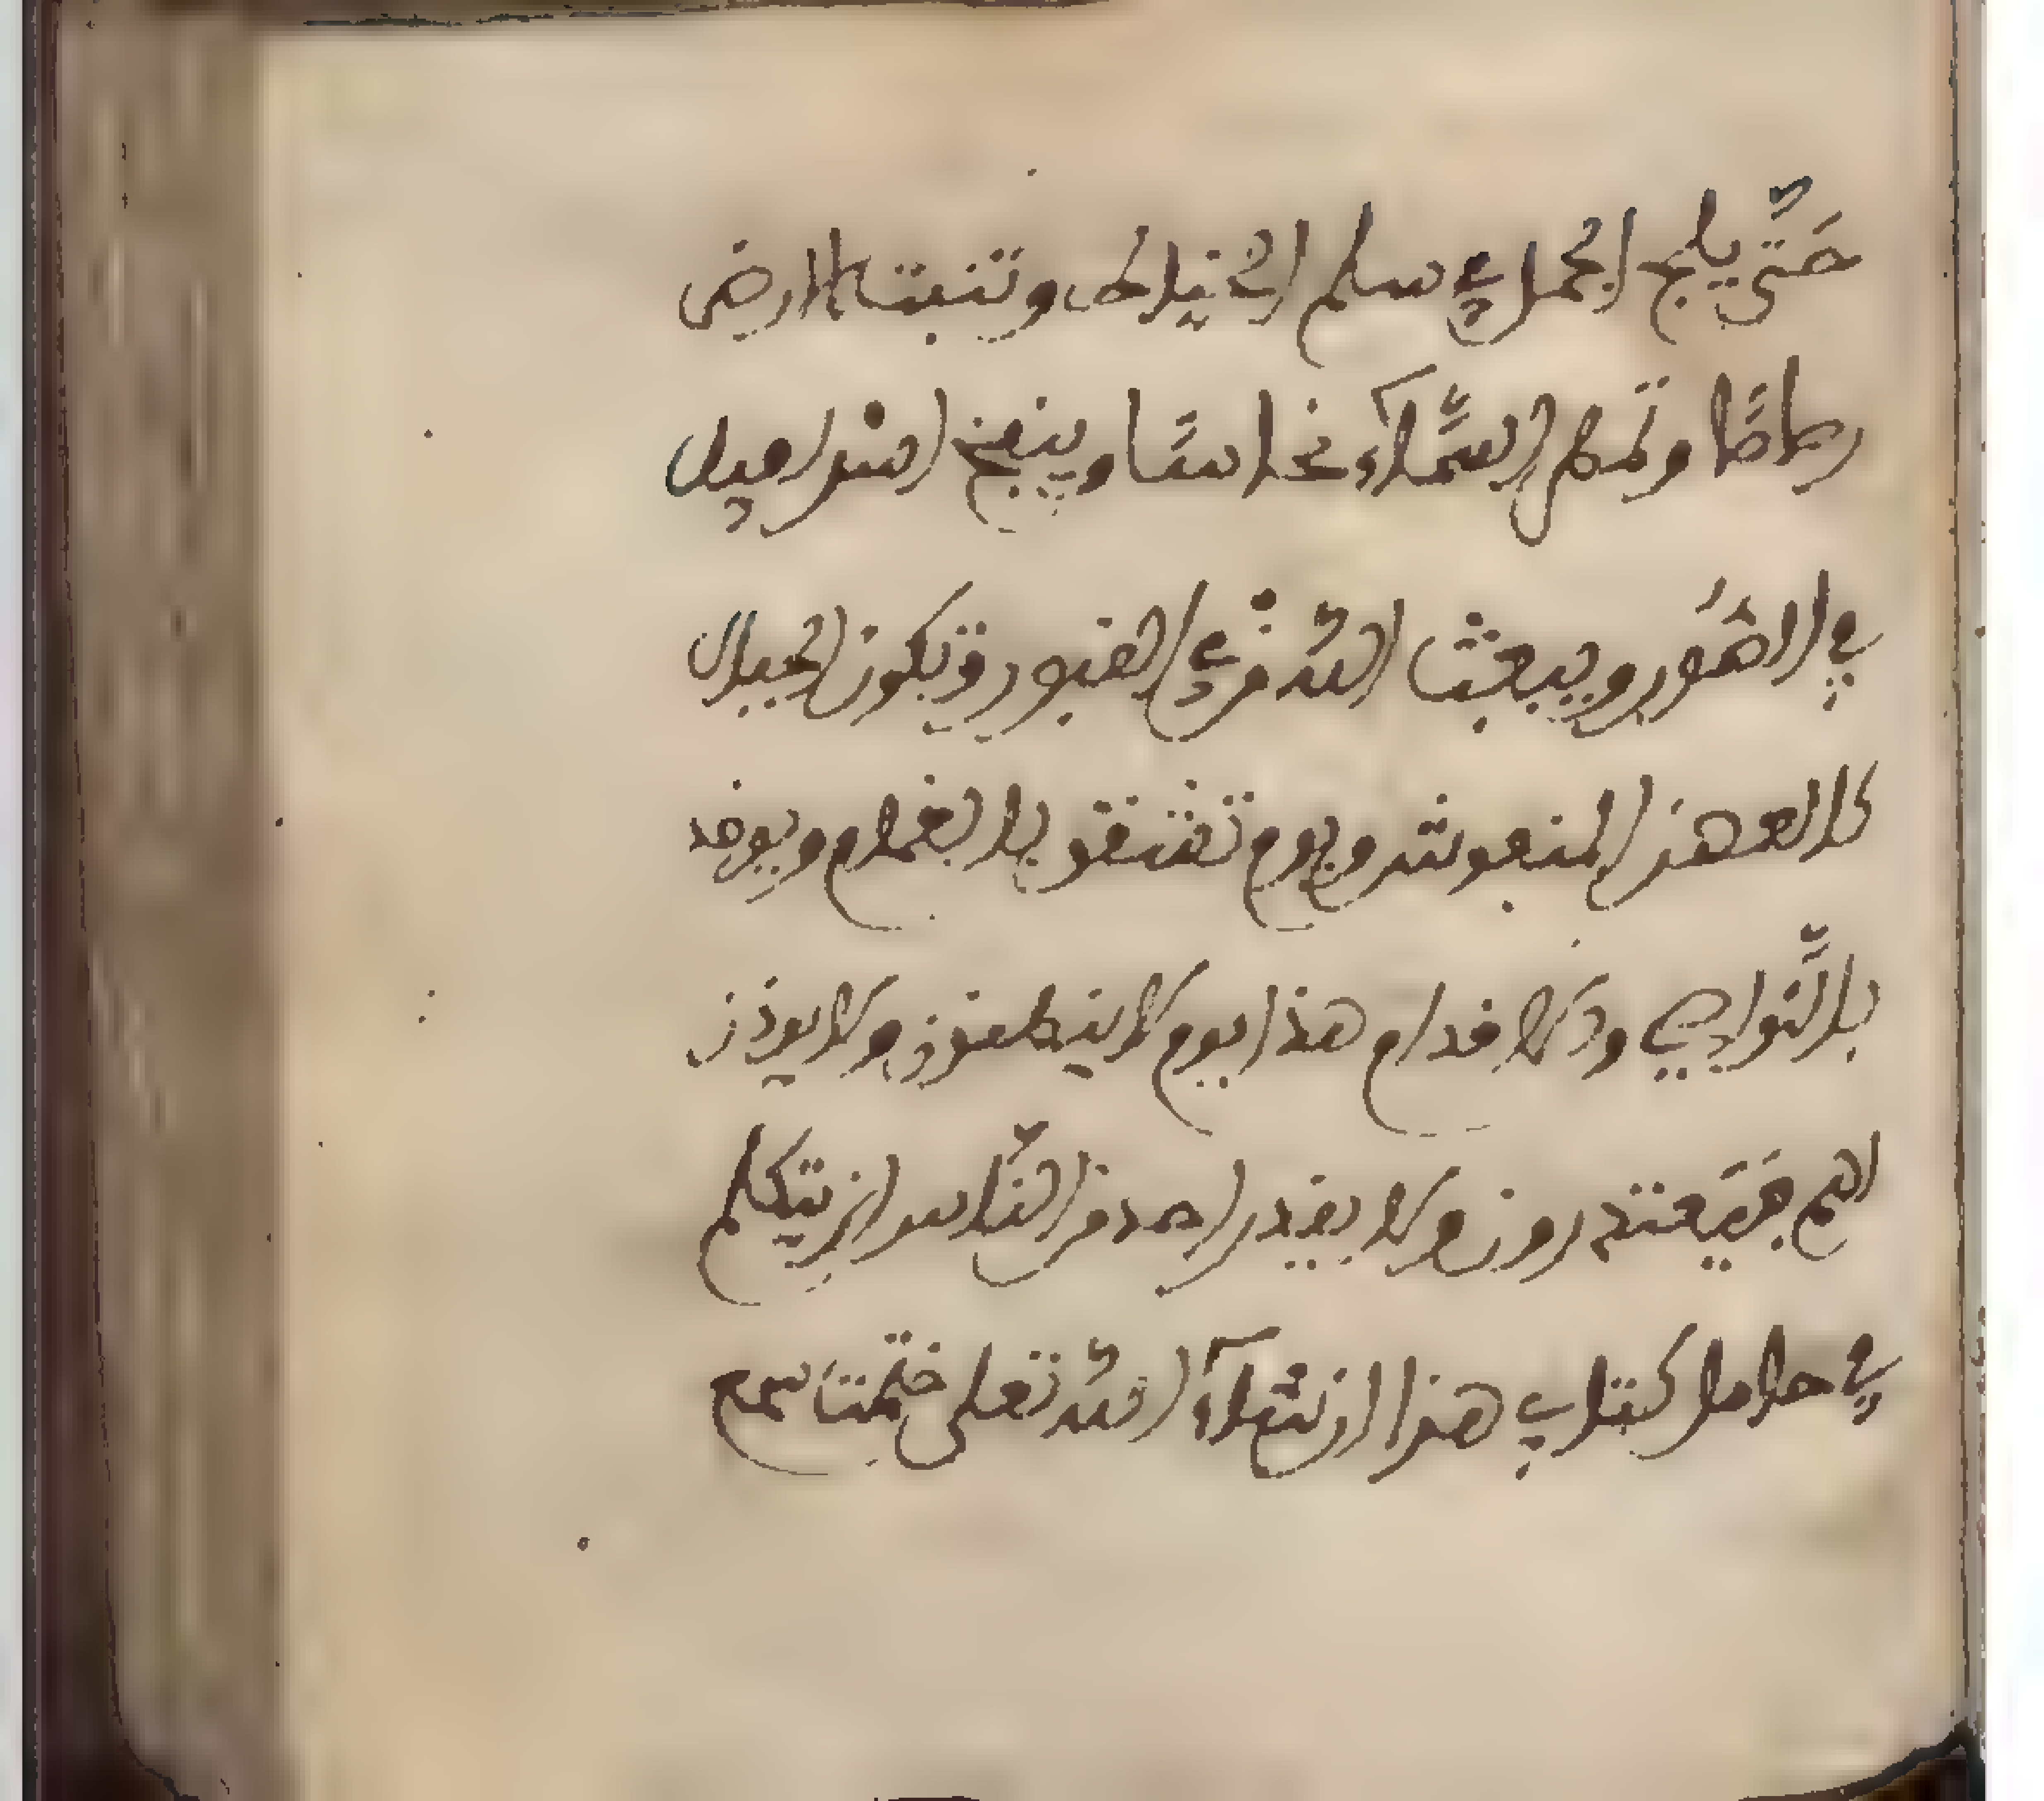 حَتَّى يلج الجمل في سلم الخياط وتنبت الارض
رصاصًا وتمطر السَّماء نحاسًا وينفخ اسرافيل
في الصُور ويبعث الله من في القبور وتكون الجبال
كالعهن المنفوش ويوم تشقق بالغمام ويوخذ
بالنَّواصي والاقدام هذا يوم لا ينطقون ولا يوذن
لهم فَيَعتذرون ولا يقدر احد من النَّاس ان يتكلم
في حامل كتابي هذا ان شاء الله تعلى ختمت